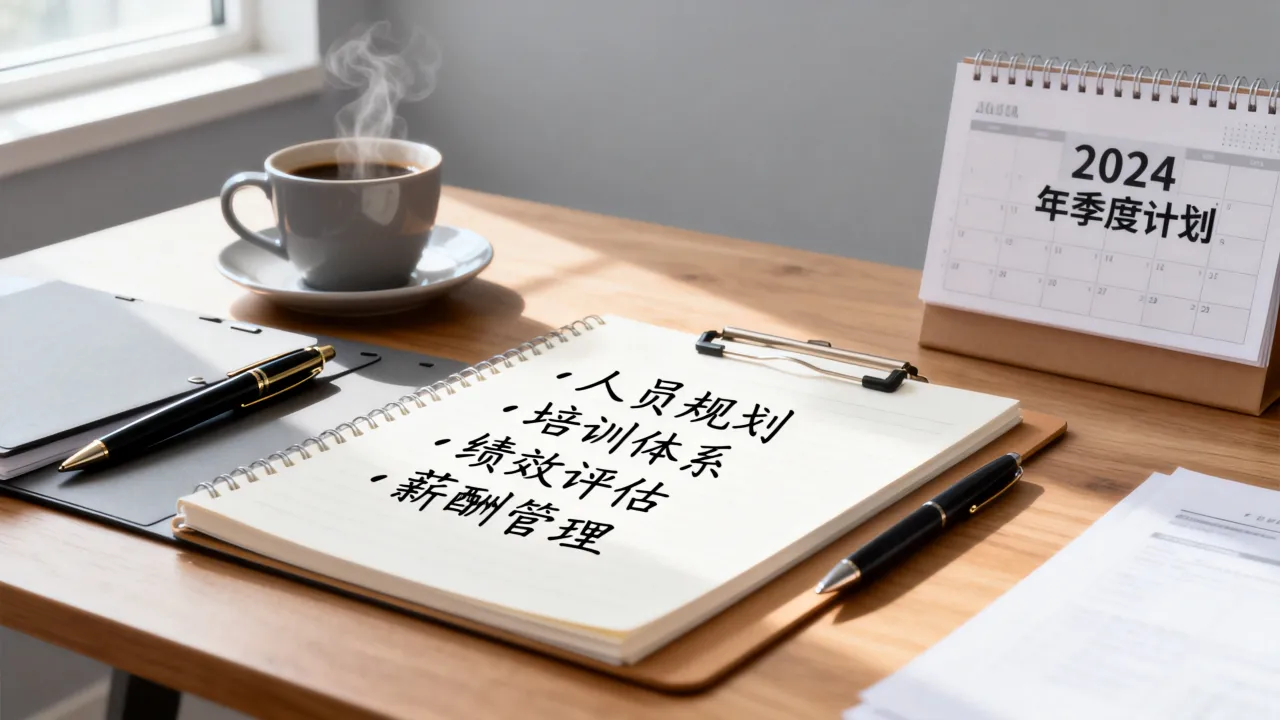 2024
年季度计划
·人员规划
·培训体系
·绩效评估
·薪酬管理